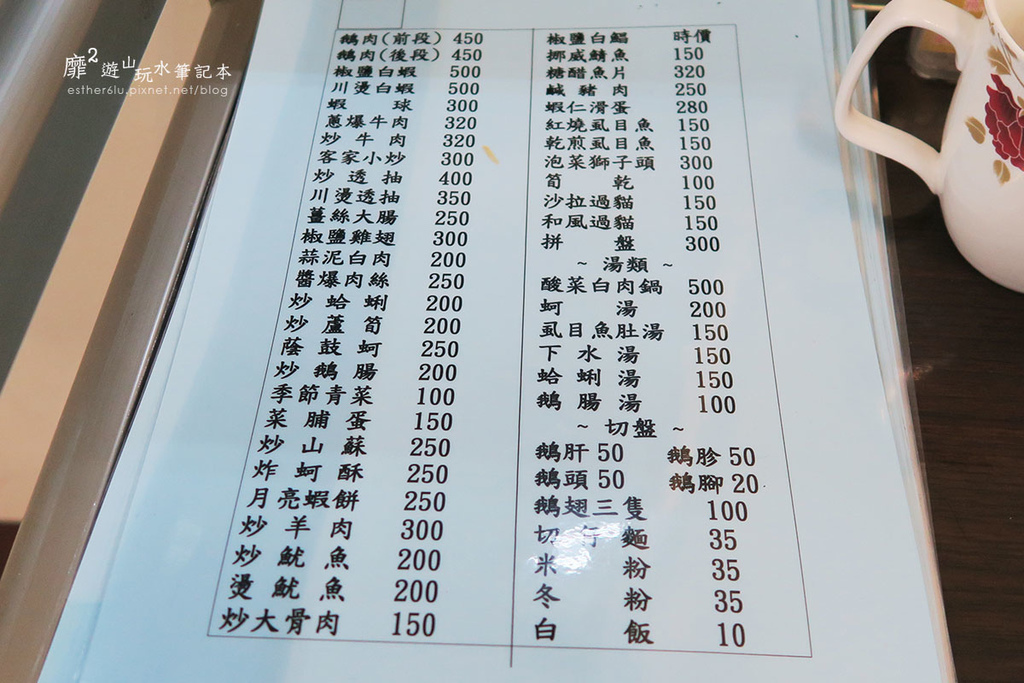 靡2遊山玩水筆記本
esther6lu.pixnet.net/blog
鵝肉(前段) 450
鵝肉(後段) 450
椒鹽白蝦 500
川燙白蝦 500
蝦球 300
蔥爆牛肉 320
炒牛肉 320
客家小炒 300
炒透抽 400
川燙透抽 350
薑絲大腸 250
椒鹽雞翅 300
蒜泥白肉 200
醬爆肉絲 250
炒蛤蜊 200
炒蘆筍 200
蔭鼓蚵 250
炒鵝腸 200
季節青菜 100
菜脯蛋 150
炒山蘇 250
炸蚵酥 250
月亮蝦餅 250
炒羊肉 300
炒魷魚 200
燙魷魚 200
炒大骨肉 150
椒鹽白鯧 時價
挪威鯖魚 150
糖醋魚片 320
鹹豬肉 250
蝦仁滑蛋 280
紅燒虱目魚 150
乾煎虱目魚 150
泡菜獅子頭 300
筍乾 100
沙拉過貓 150
和風過貓 150
拼盤 300
~ 湯類 ~
酸菜白肉鍋 500
蚵湯 200
虱目魚肚湯 150
下水湯 150
蛤蜊湯 150
鵝腸湯 100
~ 切盤 ~
鵝肝 50 鵝胗 50
鵝頭 50 鵝腳 20
鵝翅三隻 100
切仔麵 35
米粉 35
冬粉 35
白飯 10